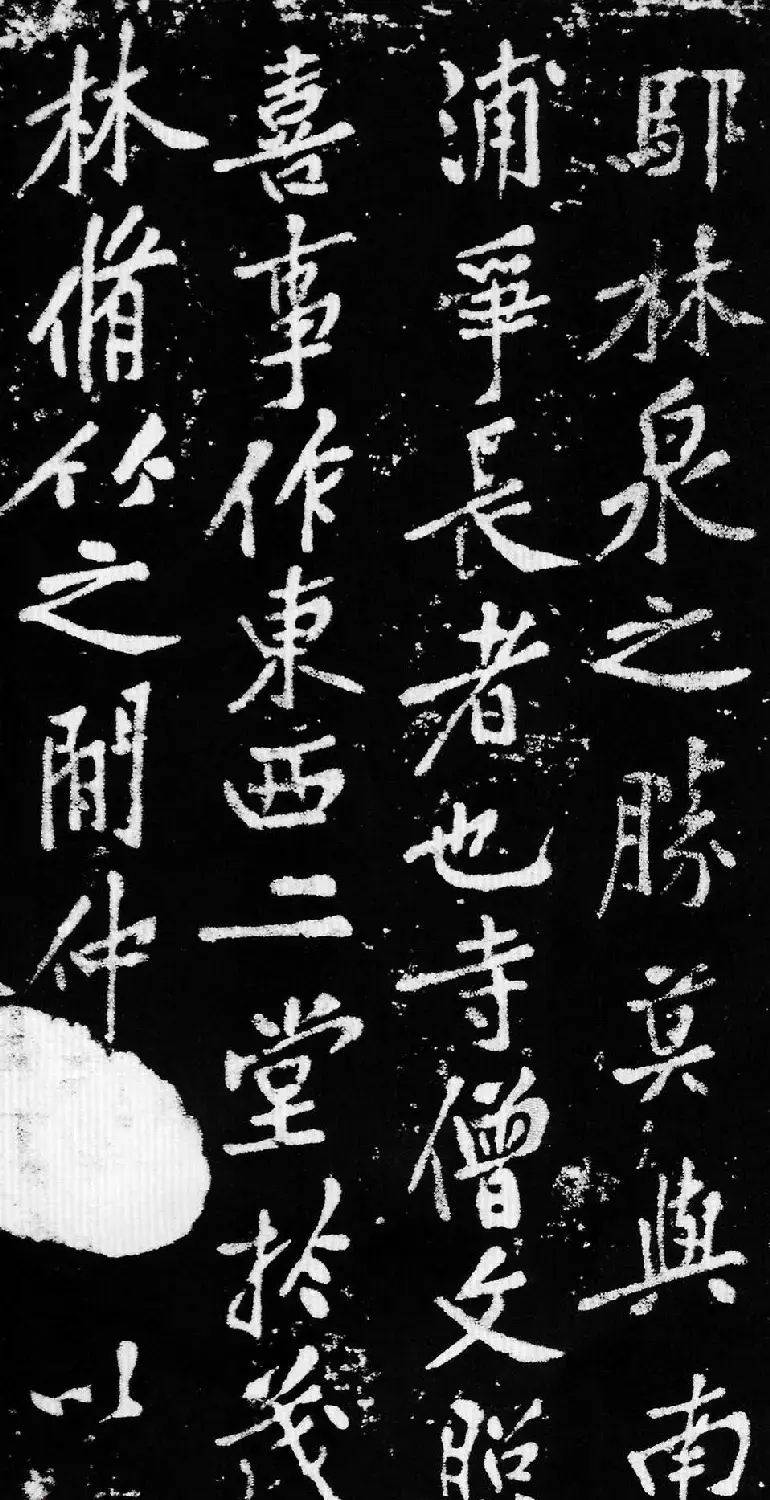 林泉之勝莫與南
浦爭長者也寺僧文照
喜事作東西二堂於茂
林脩竹之間仲
以